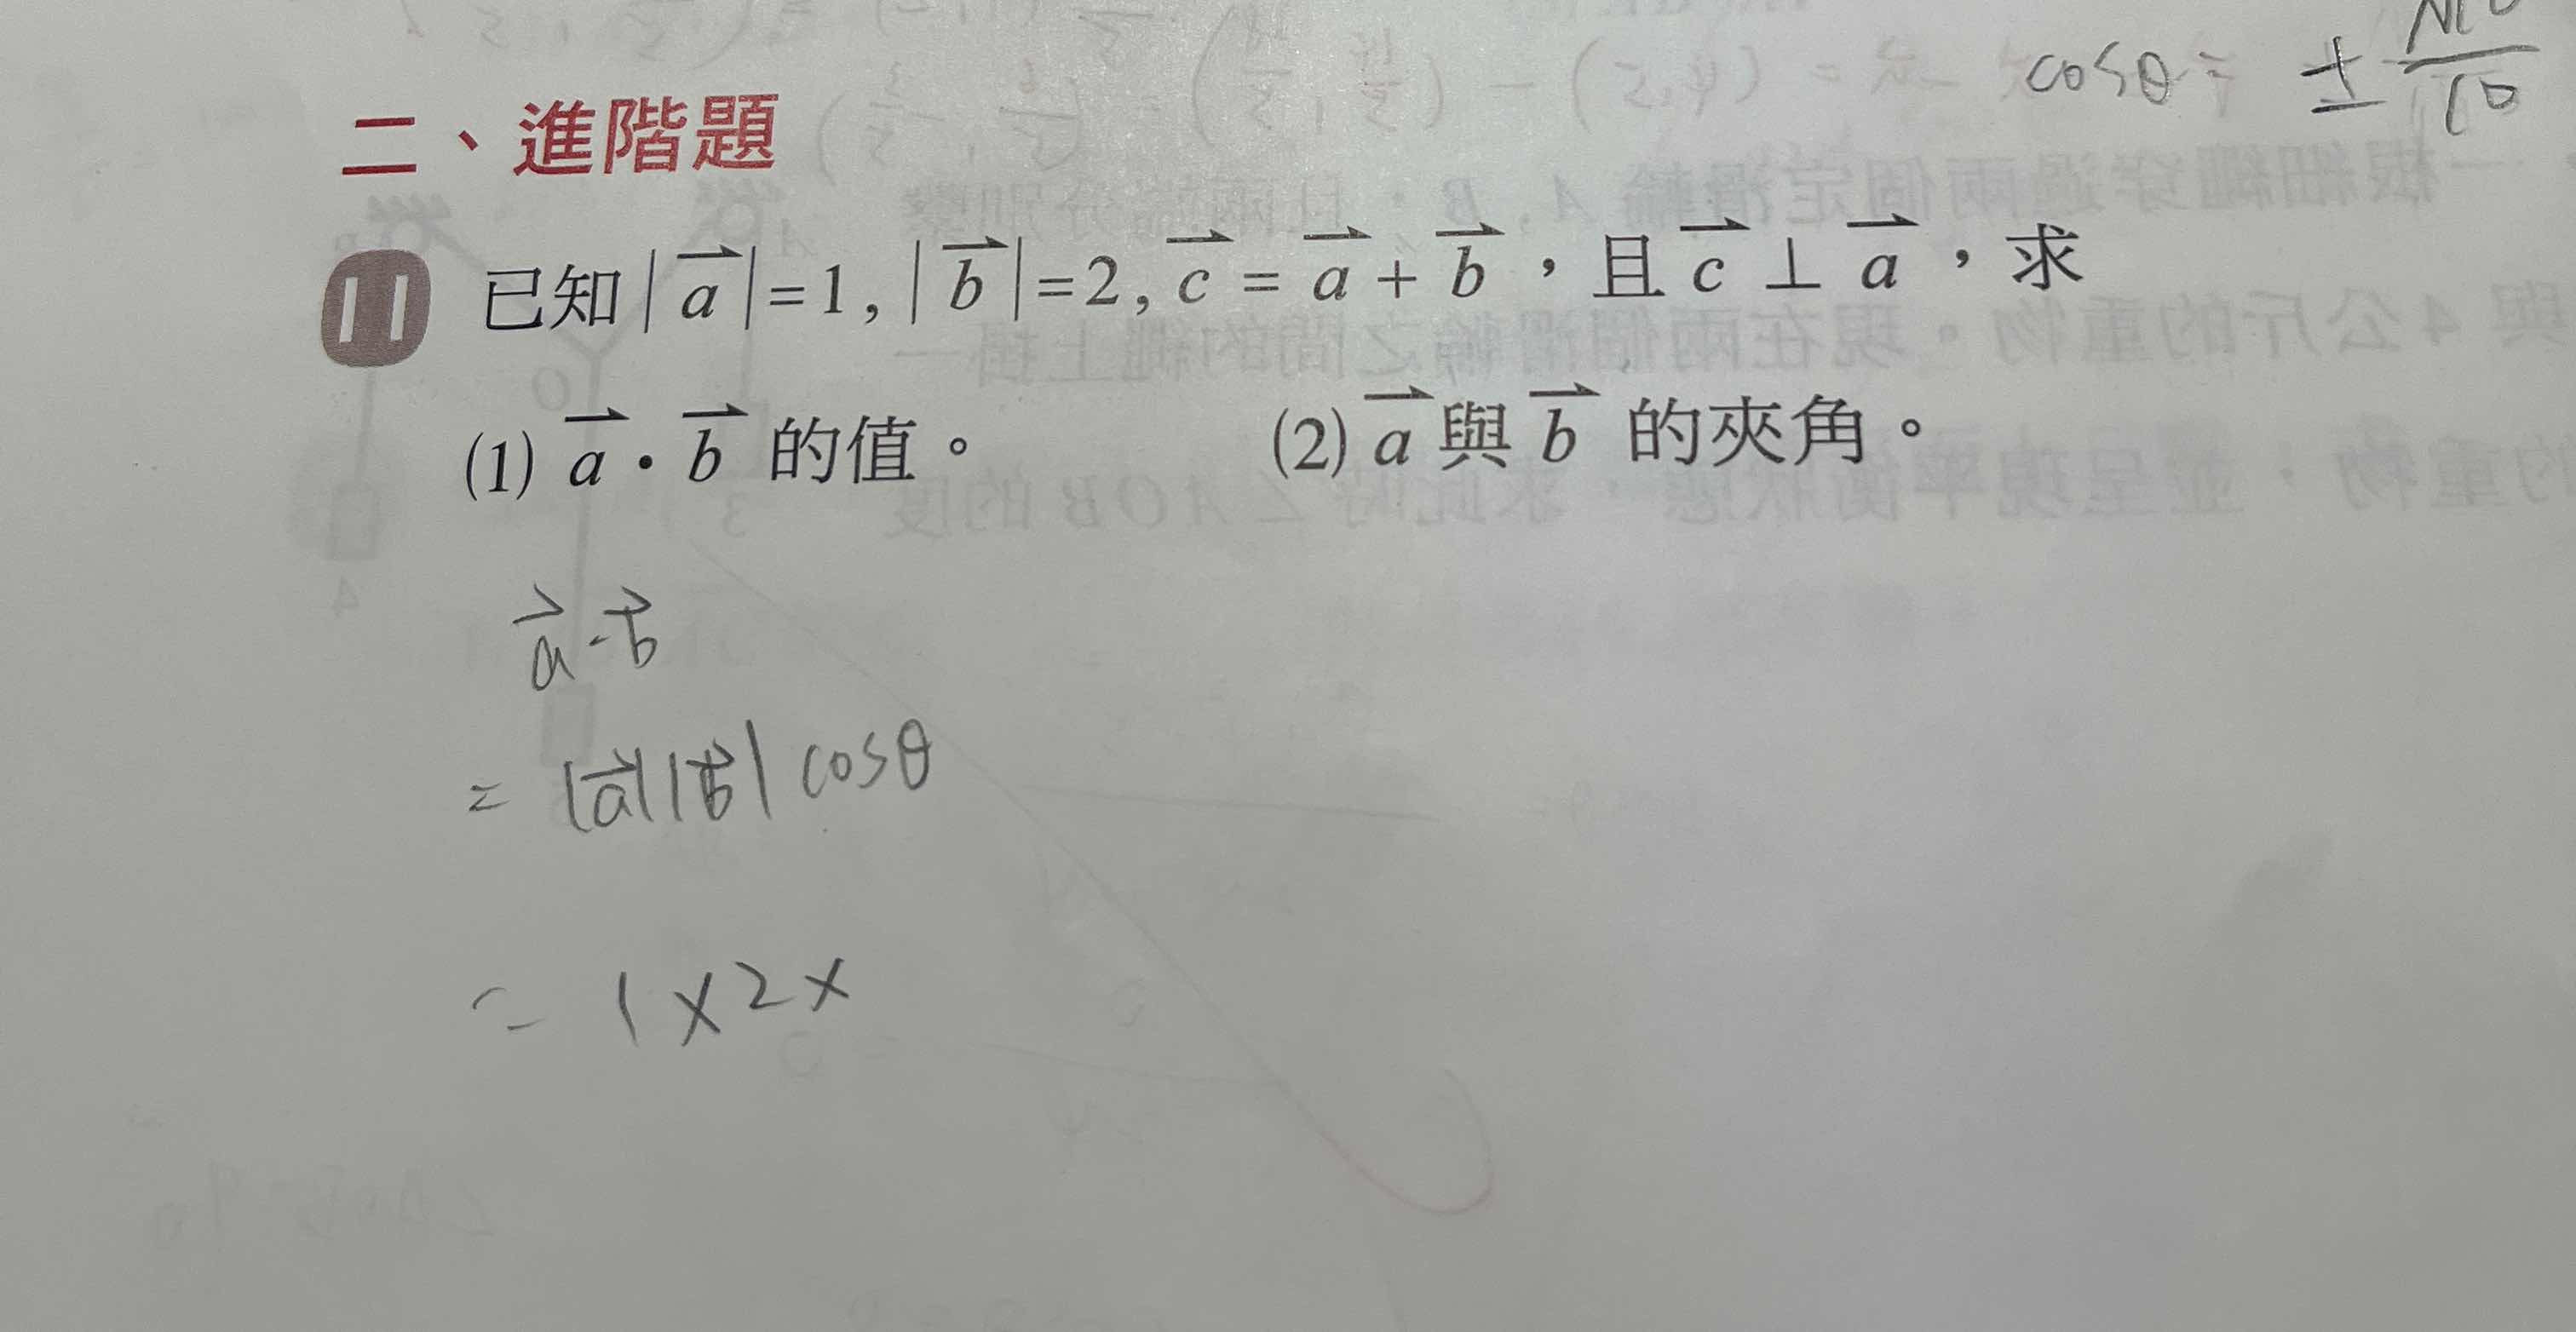 cosθ = ± √10/10
二、進階題
11 已知|a⃗|=1, |b⃗|=2, c⃗ = a⃗ + b⃗，且 c⃗ ⊥ a⃗，求
(1) a⃗・b⃗ 的值。 (2) a⃗ 與 b⃗ 的夾角。
a⃗·b⃗
= |a⃗||b⃗| cosθ
= 1×2×